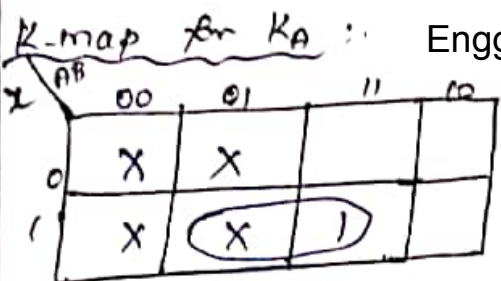 K-map for KA :- Engg
AB
x 00 01 11 10
0 X X
1 X X 1